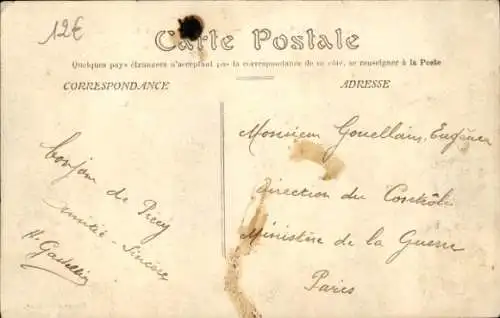 12€
Carte Postale
Quelques pays étrangers n'acceptant pas la correspondance de ce côté, se renseigner à la Poste
CORRESPONDANCE
ADRESSE
bonjour de
amitié Sincère
Monsieur Gouellain
Direction du Contrôle
Ministère de la Guerre
Paris